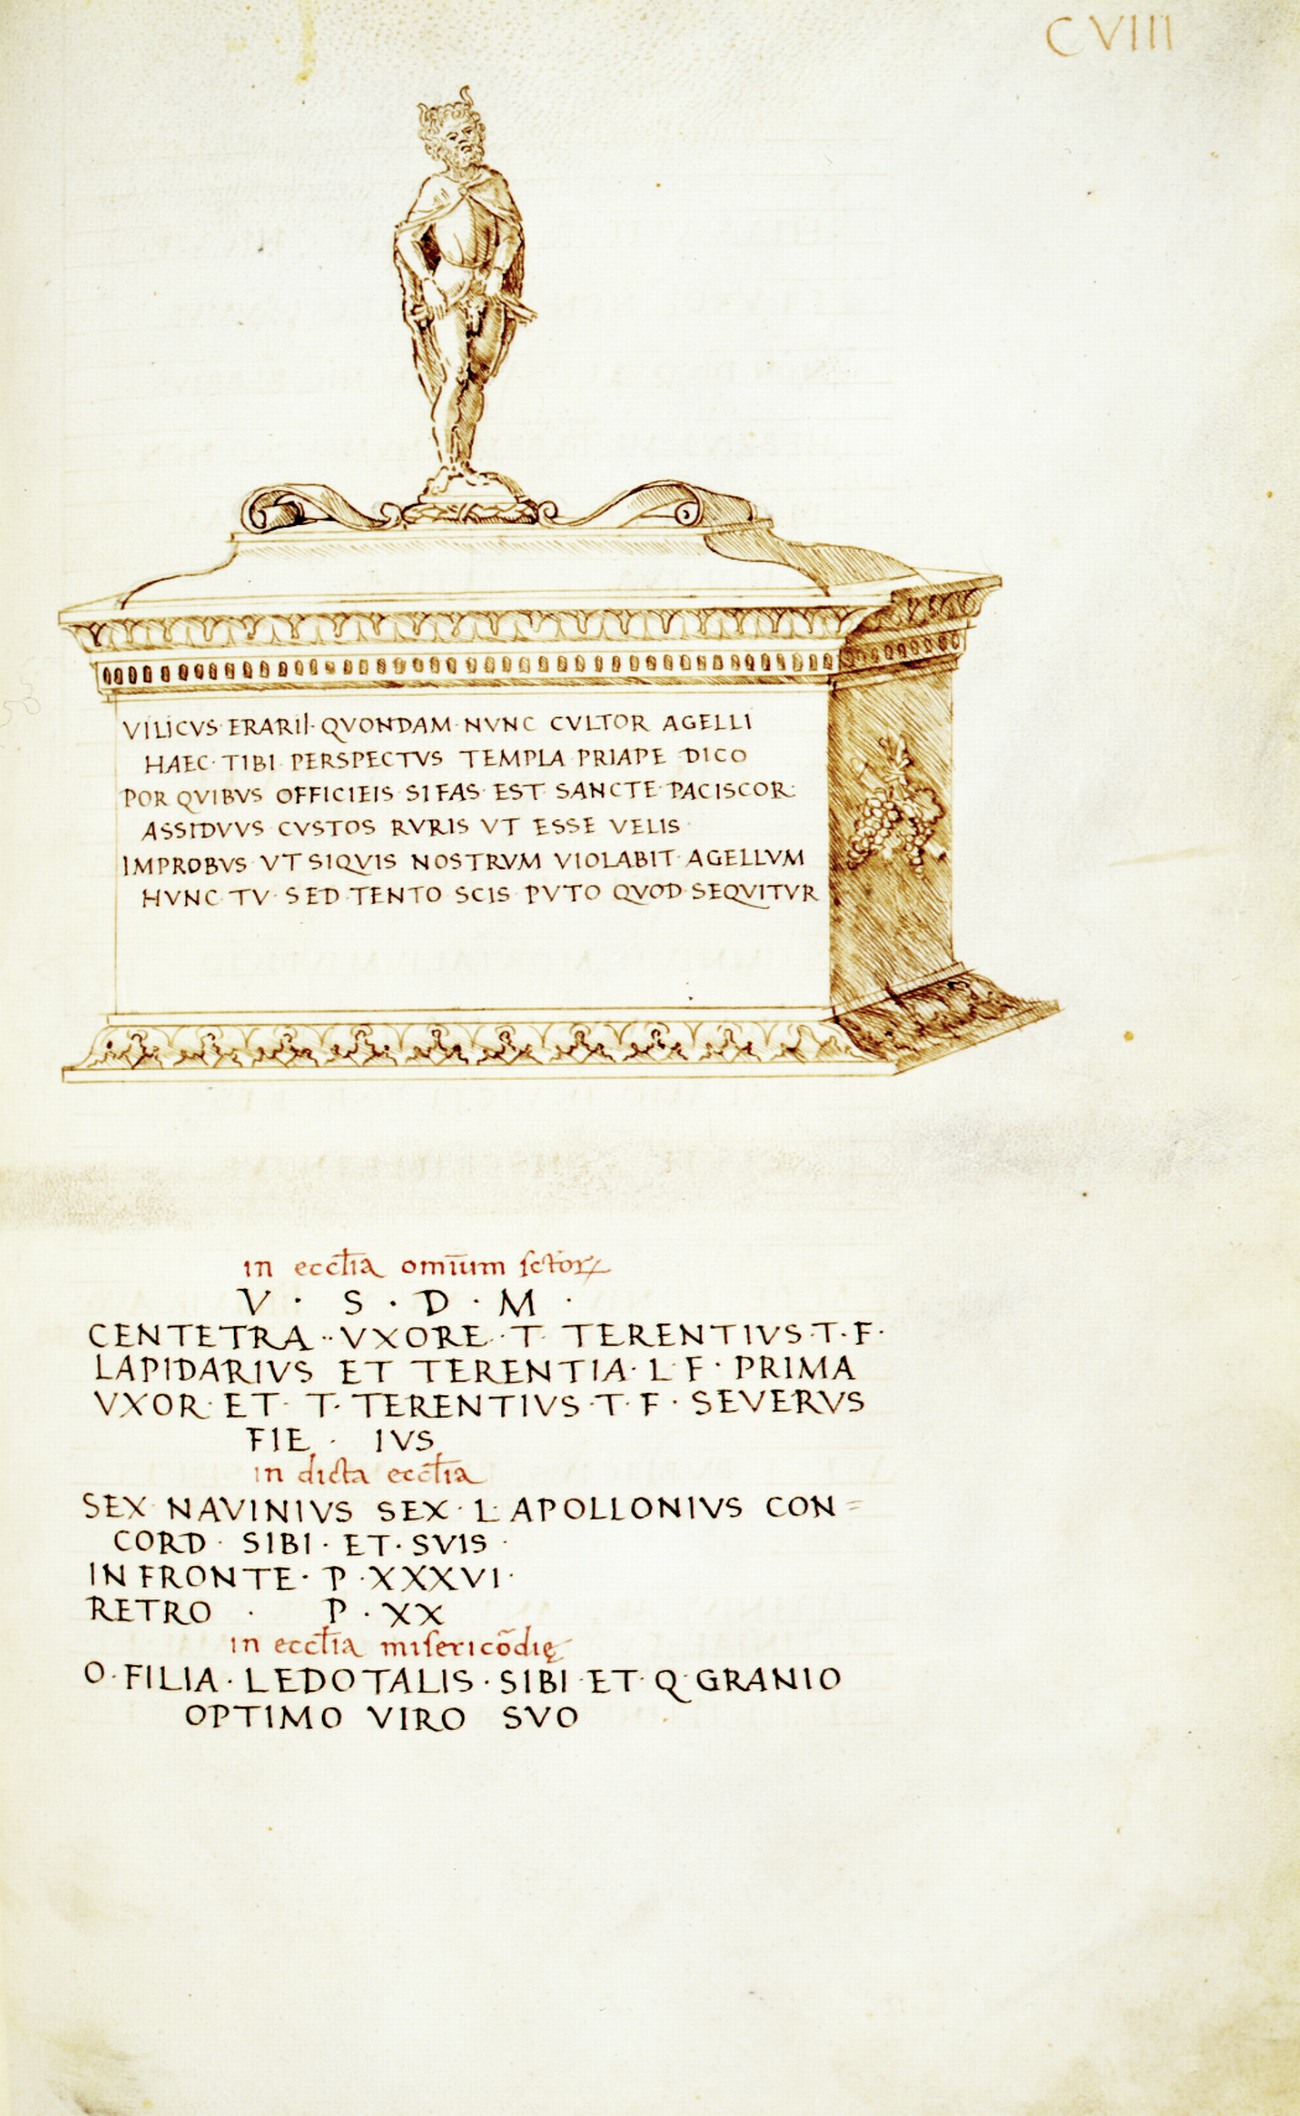 CVIII
VILICVS·ERARII·QVONDAM·NVNC CVLTOR AGELLI
HAEC·TIBI·PERSPECTVS TEMPLA PRIAPE DICO
POR QVIBVS OFFICIEIS SI FAS·EST SANCTE·PACISCOR
ASSIDVVS CVSTOS RVRIS VT ESSE VELIS·
IMPROBVS VT SIQVIS NOSTRVM VIOLABIT AGELLVM
HVNC·TV·SED·TENTO SCIS PVTO QVOD·SEQVITVR
in ecctia omium sctor
V · S · D · M ·
CENTETRA ·· VXORE · T · TERENTIVS·T·F·
LAPIDARIVS ET TERENTIA·L·F· PRIMA
VXOR·ET·T·TERENTIVS·T·F· SEVERVS
FIE · IVS
in dicta ecctia
SEX·NAVINIVS SEX·L·APOLLONIVS CON=
CORD· SIBI·ET·SVIS·
IN FRONTE·P·XXXVI·
RETRO · P·XX
in ecctia misericōdię
O·FILIA·LEDOTALIS·SIBI·ET·Q·GRANIO
OPTIMO VIRO SVO